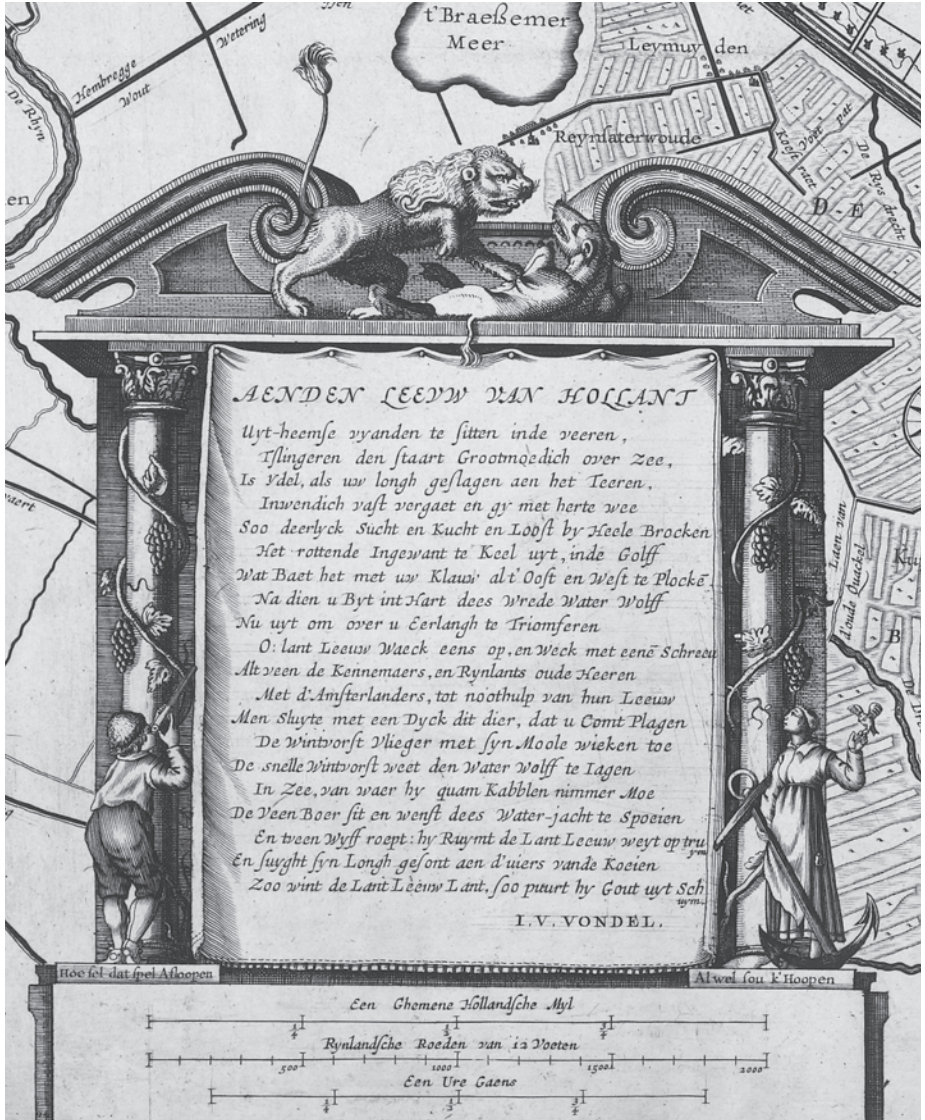 t'Braeßemer
Meer
Wetering
Hembregge
Wout
De Rhyn
Leymuyden
Reynsaterwoude
Voet pat
De
Rys
drecht
D E
en
vaert
AENDEN LEEVW VAN HOLLANT
Uyt-heemse vyanden te sitten inde veeren,
Tslingeren den staart Grootmoedich over Zee,
Is Ydel, als uw longh geslagen aen het Teeren,
Inwendich vast vergaet en gy met herte wee
Soo deerlyck Sucht en Kucht en Loost by Heele Brocken
Het rottende Ingewant te Keel uyt, inde Golff
Wat Baet het met uw Klauw al t'Oost en West te Plockē
Na dien u Byt int Hart dees Wrede Water Wolff
Nu uyt om over u Eerlangh te Triomferen
O: lant Leeuw Waeck eens op, en Weck met eenē Schreeu
Alt veen de Kennemaers, en Rynlants oude Heeren
Met d'Amsterlanders, tot noothulp van hun Leeuw
Men Sluyte met een Dyck dit dier, dat u Comt Plagen
De Wintvorst Vlieger met syn Moole wieken toe
De snelle Wintvorst weet den Water Wolff te Iagen
In Zee, van waer hy quam Kabblen nimmer Moe
De Veen Boer sit en wenst dees Water-jacht te Spoeien
En tveen Wyff roept: hy Ruymt de Lant Leeuw weyt op tru
ym
En suyght syn Longh gesont aen d'uiers vande Koeien
Zoo wint de Lant Leeuw Lant, soo puurt hy Gout uyt Sch
uym.
I.V. VONDEL.
Laen van
d'oude Quackel
B
Hoe sel dat spel Afloopen
Al wel sou k'Hoopen
Een Ghemene Hollandsche Myl
1/4 1/2 3/4
Rynlandsche Roeden van 12 Voeten
500 1000 1500 2000
Een Ure Gaens
1/4 1/2 3/4